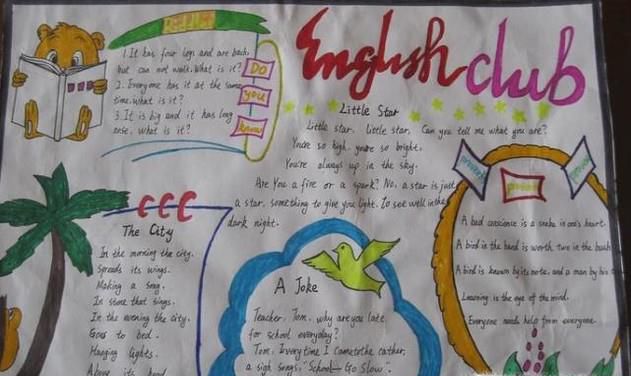 English club
1. It has four legs and are back,
but can not walk. What is it?
2. Everyone has it at the same
time. what is it?
3. It is big and it has long
nose. What is it?
DO
you
know
Little Star
Little star, little star, Can you tell me what you are?
You're so high, you're so bright.
You're always up in the sky.
Are You a fire or a spark? No, a star is just
a star, something to give you light. To see well in the
dark night.
CCC
The City
In the morning the city.
Spreads its wings.
Making a song.
In stone that sings.
In the evening the city.
Goes to bed.
Hanging lights.
Above its head
A Joke
Teacher: Tom, why are you late
for school everyday?
Tom: Every time I come to the
a sigh songs, "School—Go Slow".
proverb
proverb
A bad conscience is a snake in one's heart.
A bird in the hand is worth two in the bush
A bird is known by its note, and a man by his
Learning is the eye of the mind.
Everyone needs help from everyone.